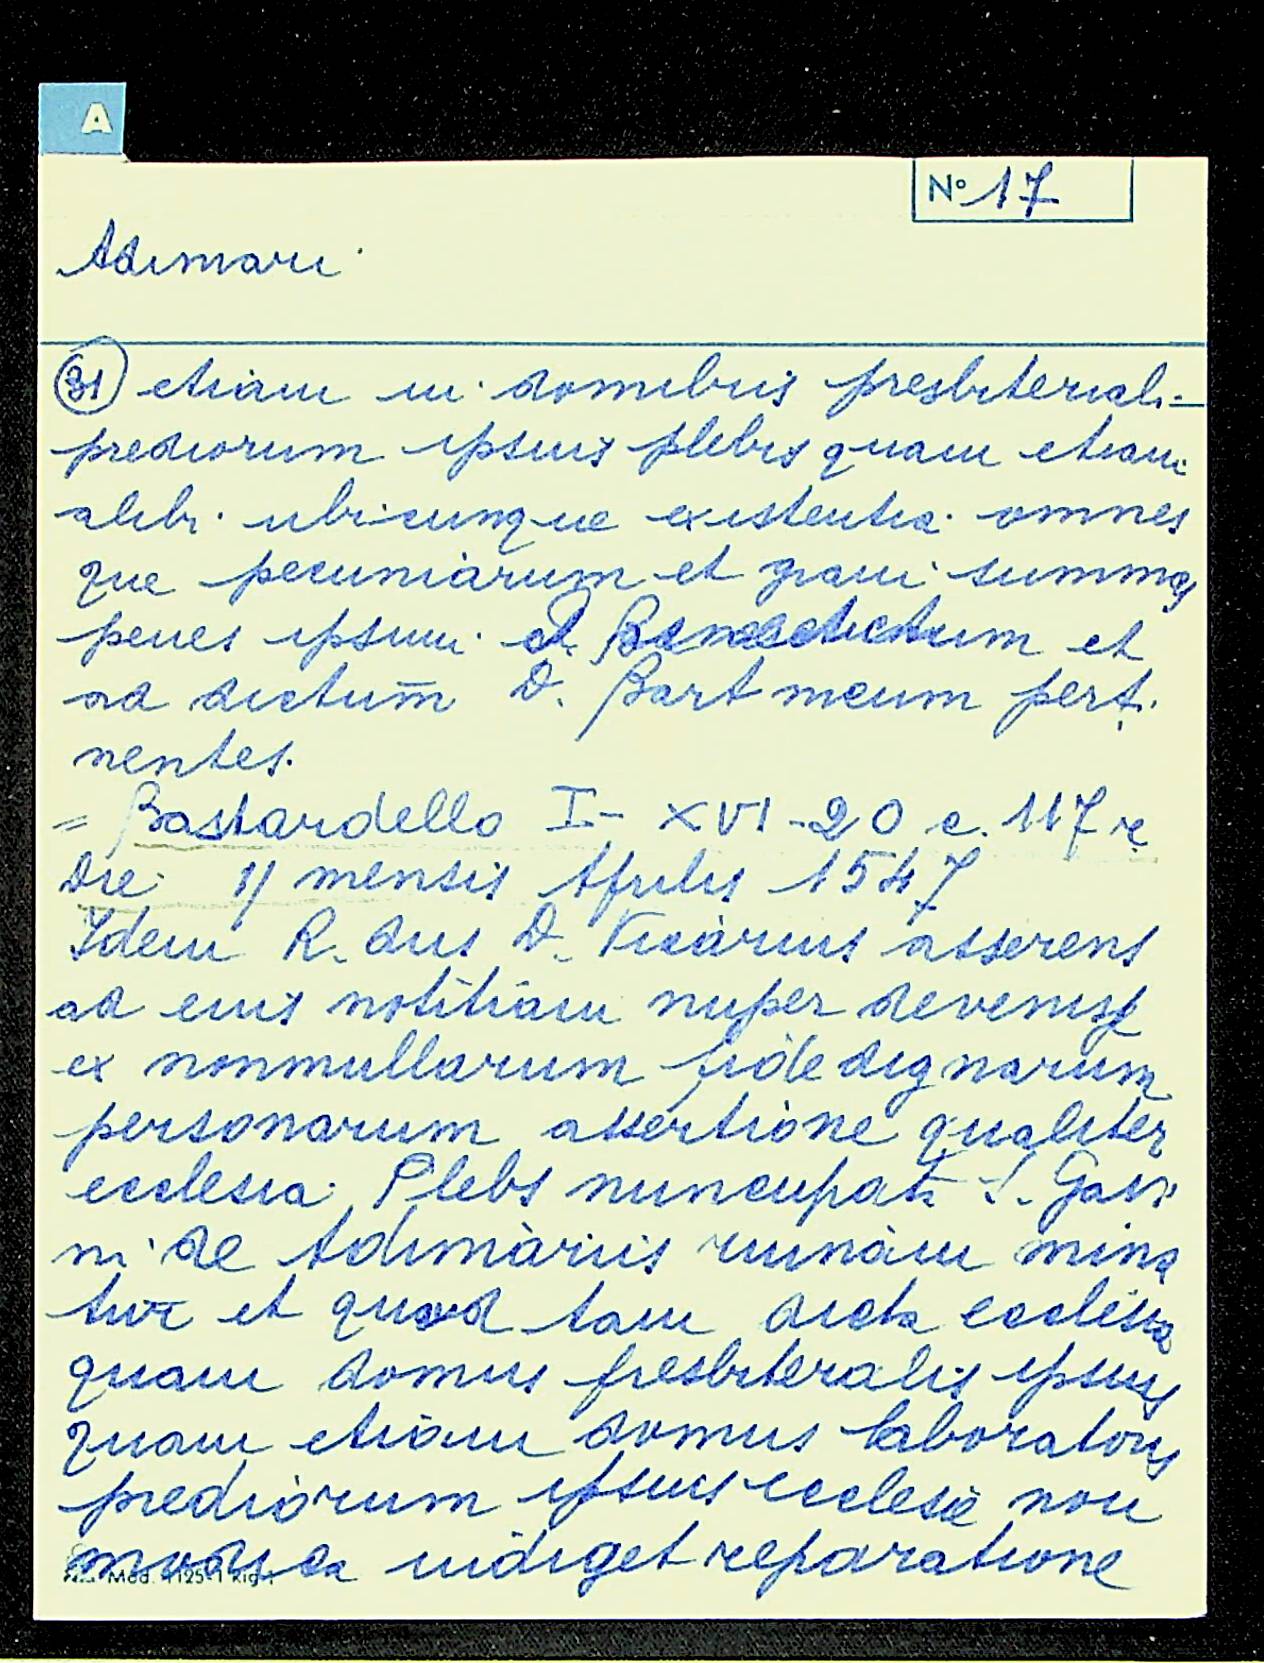 A
N° 17
Adimari
31 etiam in domibus presbiterali-
prediorum ipsius plebis quam etiam
alibi ubicunque existentia omnes
que pecuniarum et grani summas
penes ipsum d. Benedictum et
ad dictum D. Bartmeum perti
nentes.
= Bastardello I- XVI-20 c. 117 r
Die 11 mensis Aprilis 1547
Idem R. dus D. Vicarius asserens
ad eius notitiam nuper devenisse
ex nonnullarum fide dignarum
personarum assertione qualiter
ecclesia Plebs nuncupata S. Gavi
ni de Adimariis ruinam mina
tur et quod tam dicta ecclesia
quam domus presbiteralis ipsius
quam etiam domus laboratoris
prediorum ipsius ecclesie non
modica indiget reparatione
Mod. 1125-1 Rig.